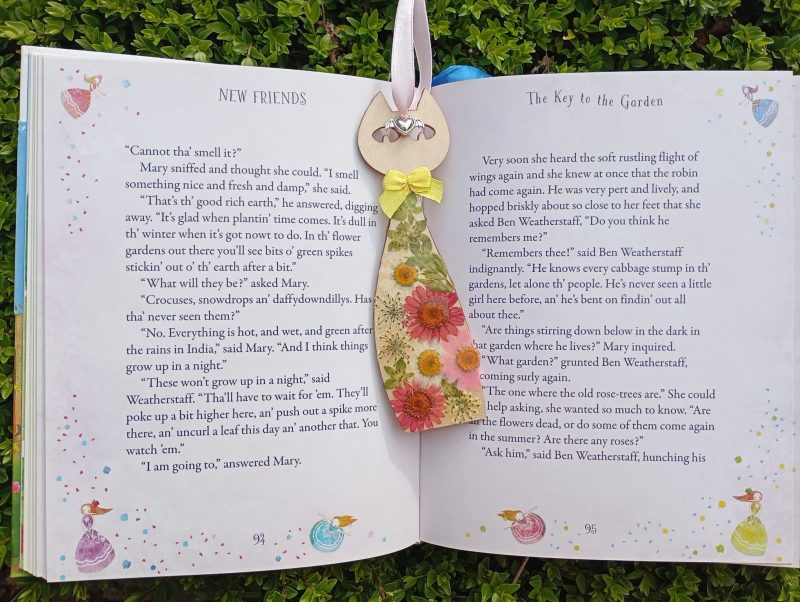 NEW FRIENDS
“Cannot tha’ smell it?”
Mary sniffed and thought she could. “I smell
something nice and fresh and damp,” she said.
“That’s th’ good rich earth,” he answered, digging
away. “It’s glad when plantin’ time comes. It’s dull in
th’ winter when it’s got nowt to do. In th’ flower
gardens out there you’ll see bits o’ green spikes
stickin’ out o’ th’ earth after a bit.”
“What will they be?” asked Mary.
“Crocuses, snowdrops an’ daffydowndillys. Has
tha’ never seen them?”
“No. Everything is hot, and wet, and green after
the rains in India,” said Mary. “And I think things
grow up in a night.”
“These won’t grow up in a night,” said
Weatherstaff. “Tha’ll have to wait for ’em. They’ll
poke up a bit higher here, an’ push out a spike more
there, an’ uncurl a leaf this day an’ another that. You
watch ’em.”
“I am going to,” answered Mary.
94
The Key to the Garden
Very soon she heard the soft rustling flight of
wings again and she knew at once that the robin
had come again. He was very pert and lively, and
hopped briskly about so close to her feet that she
asked Ben Weatherstaff, “Do you think he
remembers me?”
“Remembers thee!” said Ben Weatherstaff
indignantly. “He knows every cabbage stump in th’
gardens, let alone th’ people. He’s never seen a little
girl here before, an’ he’s bent on findin’ out all
about thee.”
“Are things stirring down below in the dark in
that garden where he lives?” Mary inquired.
“What garden?” grunted Ben Weatherstaff,
coming surly again.
“The one where the old rose-trees are.” She could
help asking, she wanted so much to know. “Are
all the flowers dead, or do some of them come again
in the summer? Are there any roses?”
“Ask him,” said Ben Weatherstaff, hunching his
95